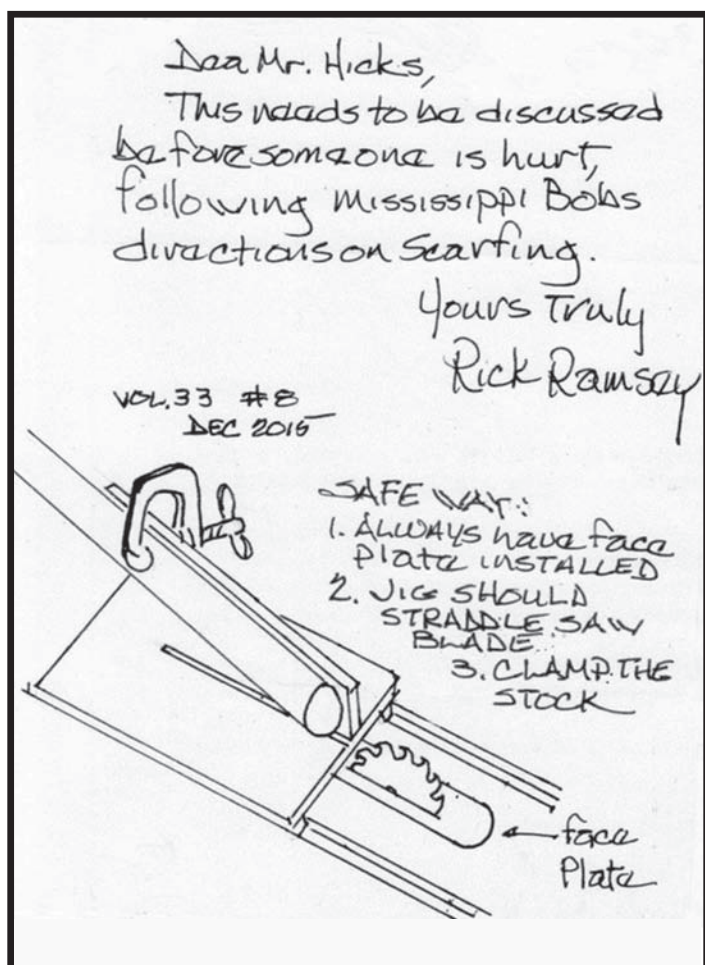 Dear Mr. Hicks,
This needs to be discussed
before someone is hurt,
following Mississippi Bobs
directions on Scarfing.
Yours Truly
Rick Ramsey
VOL. 33 #8
DEC 2015
SAFE WAY:
1. ALWAYS have face
Plate INSTALLED
2. JIG SHOULD
STRADDLE SAW
BLADE
3. CLAMP THE
STOCK
face
Plate